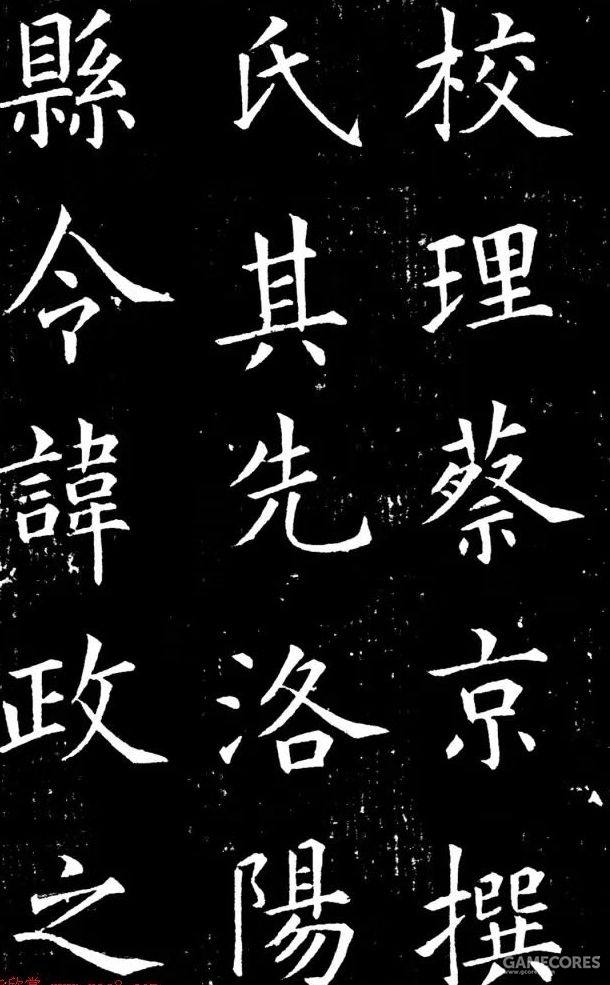 校理蔡京撰
氏其先洛陽
縣令諱政之
GAMECORES
www.gcores.com